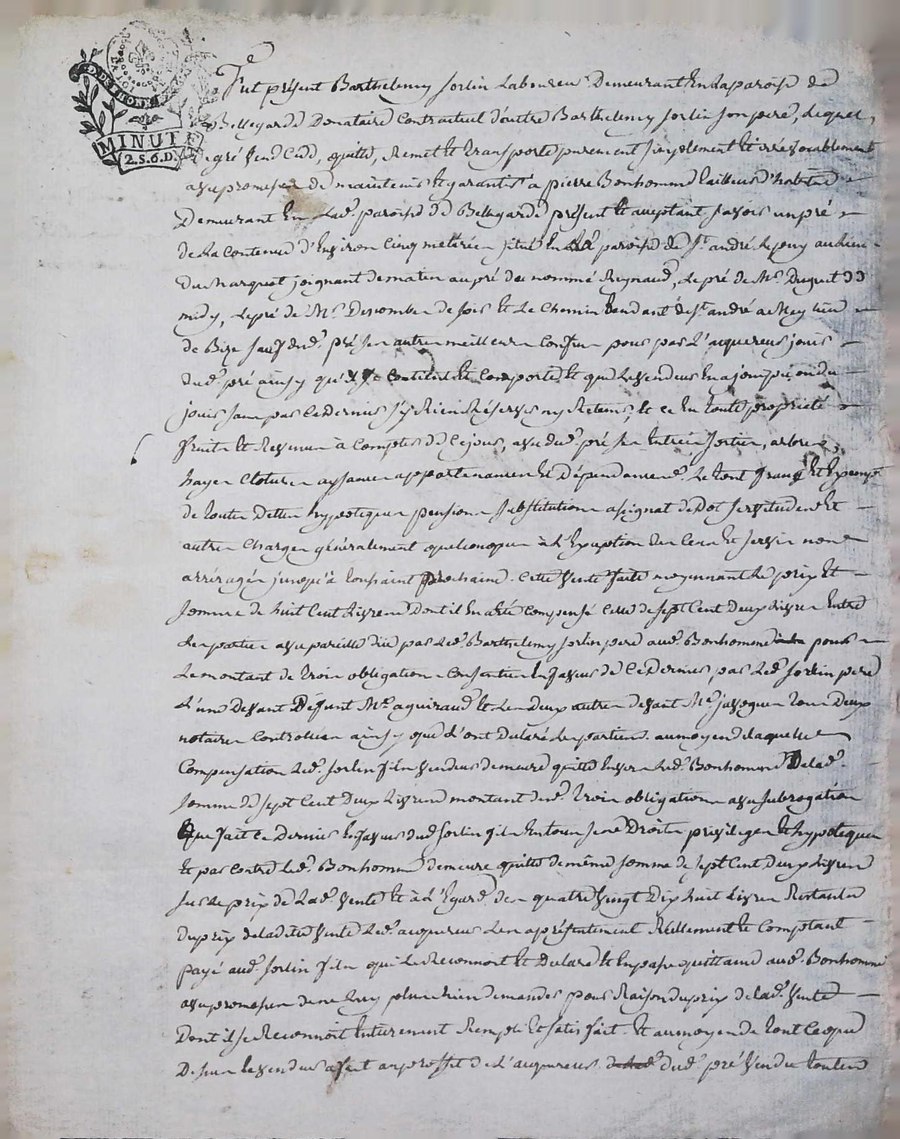 LA LOI
D. DE RHONE ET
MINUTE
2.S.6.D.
Fut présent Barthelemy Jorlin Laboureur Demeurant En la paroisse de
Bellegarde Donataire Contractuel d'autre Barthelemy Jorlin son pere, Lequel,
de gré Vend Cedde, quitte, Remet et transporte purement simplement et irrevocablement
avec promesse de maintenir et garantir a pierre Bonhomme tailleur d'habits
Demeurant En Lad. paroisse de Bellegarde présent et acceptant savoir un pré
de la Contenue d'Environ Cinq metérées situé En paroisse de St. andré Le puy au lieu
du Marquet joignant de matin au pré du nommé Reynaud, Le pré de Mr. Duguet de
midy, Le pré de Mr. Descombes de soir et Le Chemin tendant de St. andré a
de Bize sauf dud. pré ses autres meilleurs Confins pour par L'acquereur jouir
dud. pré ainsy qu'il se Contient et Comporte et que Le vendeur En a joui pû ou dû
jouir sans par Ce dernier s'y Rien Réserver ny Retenir, et ce En toute propriété
fruits et Revenus à Compter de Ce jour, avec dud. pré ses Entrées sorties, arbres,
hayes Clotures aysances appartenances et Dépendances. Le tout franc et Exempt
de toutes Dettes hypoteques pensions substitutions assignat de Dot servitudes et
autres Charges généralement quelconques à L'Exception des Cens et servis non
arréragés jusqu'à Toussaint prochaine. Cette Vente faite moyennant Le prix et
somme de huit Cent Livres Dont il En a été Compensé Celle de sept Cent Deux Livres Entre
Les parties avec pareille düe par Led. Barthelemy Jorlin pere aud. Bonhomme pour
Le montant de trois obligations Consenties En faveur de Ce Dernier par Led. Jorlin pere
L'une Devant Défunt Me. aguiraud et Les deux autres devant Me. tous Deux
notaires Controllées ainsy que L'ont Déclaré Les parties. au moyen de laquelle
Compensation Led. Jorlin fils vendeur demeure quitte Envers Led. Bonhomme De lad.
somme de sept Cent Deux Livres montant desd. trois obligations avec subrogation
Que fait Ce Dernier En faveur dud. Jorlin fils En tous ses Droits privileges et hypoteques
Et par Contre Led. Bonhomme demeure quitte de même somme de sept Cent Deux Livres
sur Le prix de Lad. Vente Et à L'Egard des quatre Vingt Dix huit Livres Restantes
du prix de ladite Vente Led. acquereur Les a présentement Réellement et Comptant
payé aud. Jorlin fils qui Le Reconnoit et Declare et En passe quittance aud. Bonhomme
avec promesse de ne Luy plus Rien demander pour Raison du prix de lad. Vente
Dont il se Reconnoit Entierement Rempli et satisfait Et au moyen de tout Ce que
Dessus Le vendeur s'est au proffit de L'acquereur dud. pré Vendu toutes